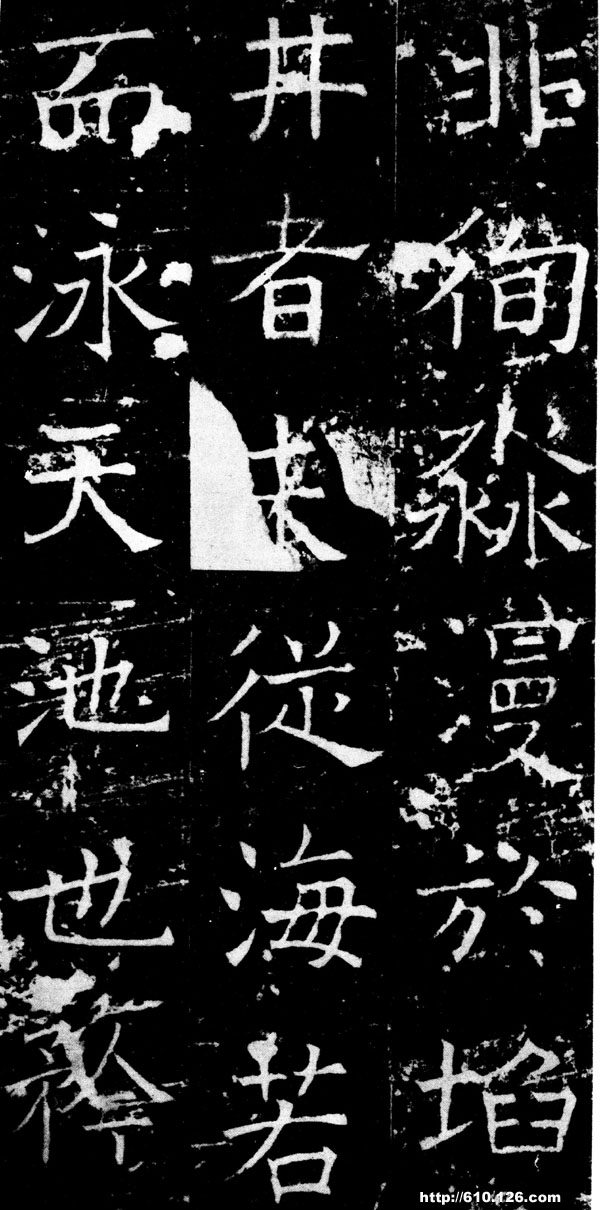 非徇淼漫於埳
丼者未從海若
而泳天池也
http://610.126.com